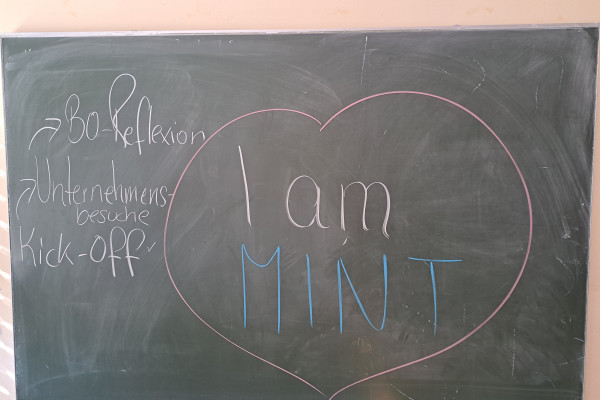 → BO-Reflexion
→ Unternehmens-
besuche
Kick-off ✓
I am
MINT